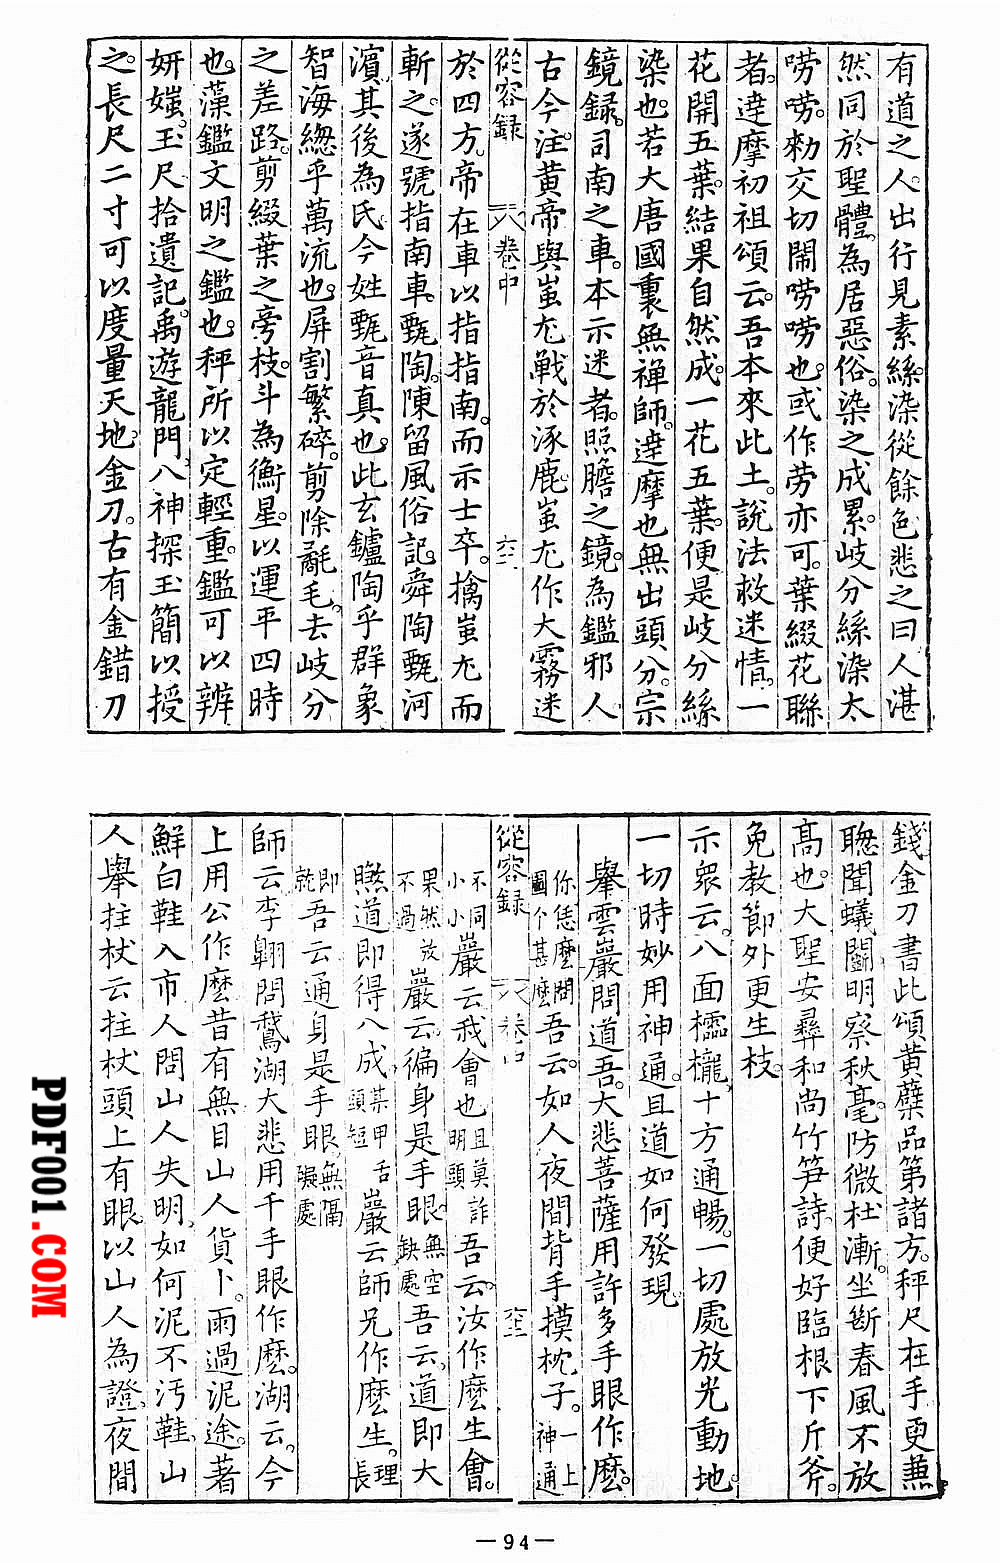 有道之人。出行見素絲。染從餘色。悲之曰。人湛
然同於聖體。為居惡俗。染之成累。岐分絲染太
嘮嘮。勑交切鬧嘮嘮也。或作劳亦可。葉綴花聯
者。達摩初祖頌云。吾本來此土。說法救迷情。一
花開五葉。結果自然成。一花五葉。便是岐分絲
染也。若大唐國裏無禪師。達摩也無出頭分。宗
鏡録。司南之車。本示迷者。照膽之鏡。為鑑邪人。
古今注。黃帝與蚩尤戰於涿鹿。蚩尤作大霧迷
從容録 卷中 六一
於四方。帝在車以指指南。而示士卒。擒蚩尤而
斬之。遂號指南車。甄陶。陳留風俗記。舜陶甄河
濵。其後為氏。今姓甄音真也。此玄鑪陶乎群象
智海緫乎萬流也。屏割繁碎。剪除毳毛。去岐分
之差路。剪綴葉之旁枝。斗為衡星。以運平四時
也。藻鑑文明之鑑也。秤所以定輕重。鑑可以辨
妍媸。玉尺拾遺記。禹遊龍門。八神探玉簡以授
之。長尺二寸可以度量天地。金刀。古有金錯刀
錢。金刀書。此頌黃蘗品第諸方。秤尺在手更兼
聦聞蟻鬭。明察秋毫。防微杜漸。坐斷春風不放
髙也。大聖安彞和尚竹笋詩。便好臨根下斤斧。
免教節外更生枝。
示衆云。八面櫺櫳。十方通暢。一切處放光動地。
一切時妙用神通。且道如何發現。
舉雲巖問道吾。大悲菩薩用許多手眼作麽。
你恁麽問圖个甚麽吾云。如人夜間背手摸枕子。一上神通
從容録 卷中 六二
不同小小巖云。我會也且莫詐明頭吾云。汝作麽生會。
果然放不過巖云。徧身是手眼。無空缺處吾云。道即大
瞧道即得八成某甲舌頭短巖云。師兄作麽生。理長
即就吾云。通身是手眼無隔礙處
師云。李翶問鵞湖大悲用千手眼作麽。湖云。今
上用公作麽。昔有無目山人貨卜。雨過泥途。著
鮮白鞋入市。人問山人失明。如何泥不汚鞋。山
人舉拄杖云。拄杖頭上有眼。以山人為證。夜間
—94—
PDF001.COM